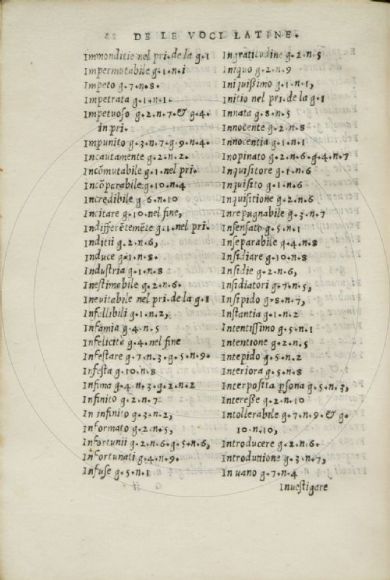 DE LE VOCI LATINE.
Immonditie nel pri. de la g.1
Impermutabile g.1.n.i
Impeto g.7.n.8.
Impetrata g.1.n.1.
Impetuoso g.2.n.7.& g4.
in pri.
Impunito g.3.n.7.g.9.n.4.
Incautamente g.2.n.2.
Incōmutabile g.1.nel pri.
Incōperabile g.10.n.4
Incredibile g.6.n.10
Incitare g.10.nel fine,
Indifferētemēte g.1.nel pri.
Inditij g.2.n.6,
Induce g.1.n.8.
Industria g.1.n.8
Inestimabile g.2.n.6.
Ineuitabile nel pri.de la g.1
Infallibili g.1.n.2,
Infamia g.4.n.5
Infelicità g.4.nel fine
Infestare g.7.n.3.g.5.n.9.
Infesta g.10.n.8
Infimo g.4.n.3.g.2.n.2
Infinito g.2.n.7.
In infinito g.3.n.2,
Informato g.2.n.5,
Infortunij g.2.n.6.g.5.n.6,
Infortunati g.4.n.9.
Infuse g.5.n.1
Ingratitudine g.2.n.5
Iniquo g.2.n.9.
Iniquissimo g.1.n.1,
Initio nel pri.de la g.1
Innata g.8.n.5
Innocente g.2.n.8
Innocentia g.1.n.1
Inopinato g.2.n.6.g.4.n.7
Inquisitore g.1.n.6
Inquisito g.1.n.6
Inquisitione g.2.n.6
Inrepugnabile g.3.n.7
Insensato g.5.n.1
Inseparabile g.4.n.8
Insidiare g.10.n.8
Insidie g.2.n.6,
Insidiatori g.7.n.5,
Insipido g.8.n.7,
Instantia g.1.n.2
Intentissimo g.5.n.1
Intentione g.2.n.5
Intepido g.5.n.2
Interiora g.5.n.8
Interposita psona g.5.n.3,
Interesse g.2.n.10
Intollerabile g.7.n.9.& g.
10.n.10,
Introducere g.2.n.6.
Introduttione g.3.n.7,
In uano g.7.n.4
Inuestigare